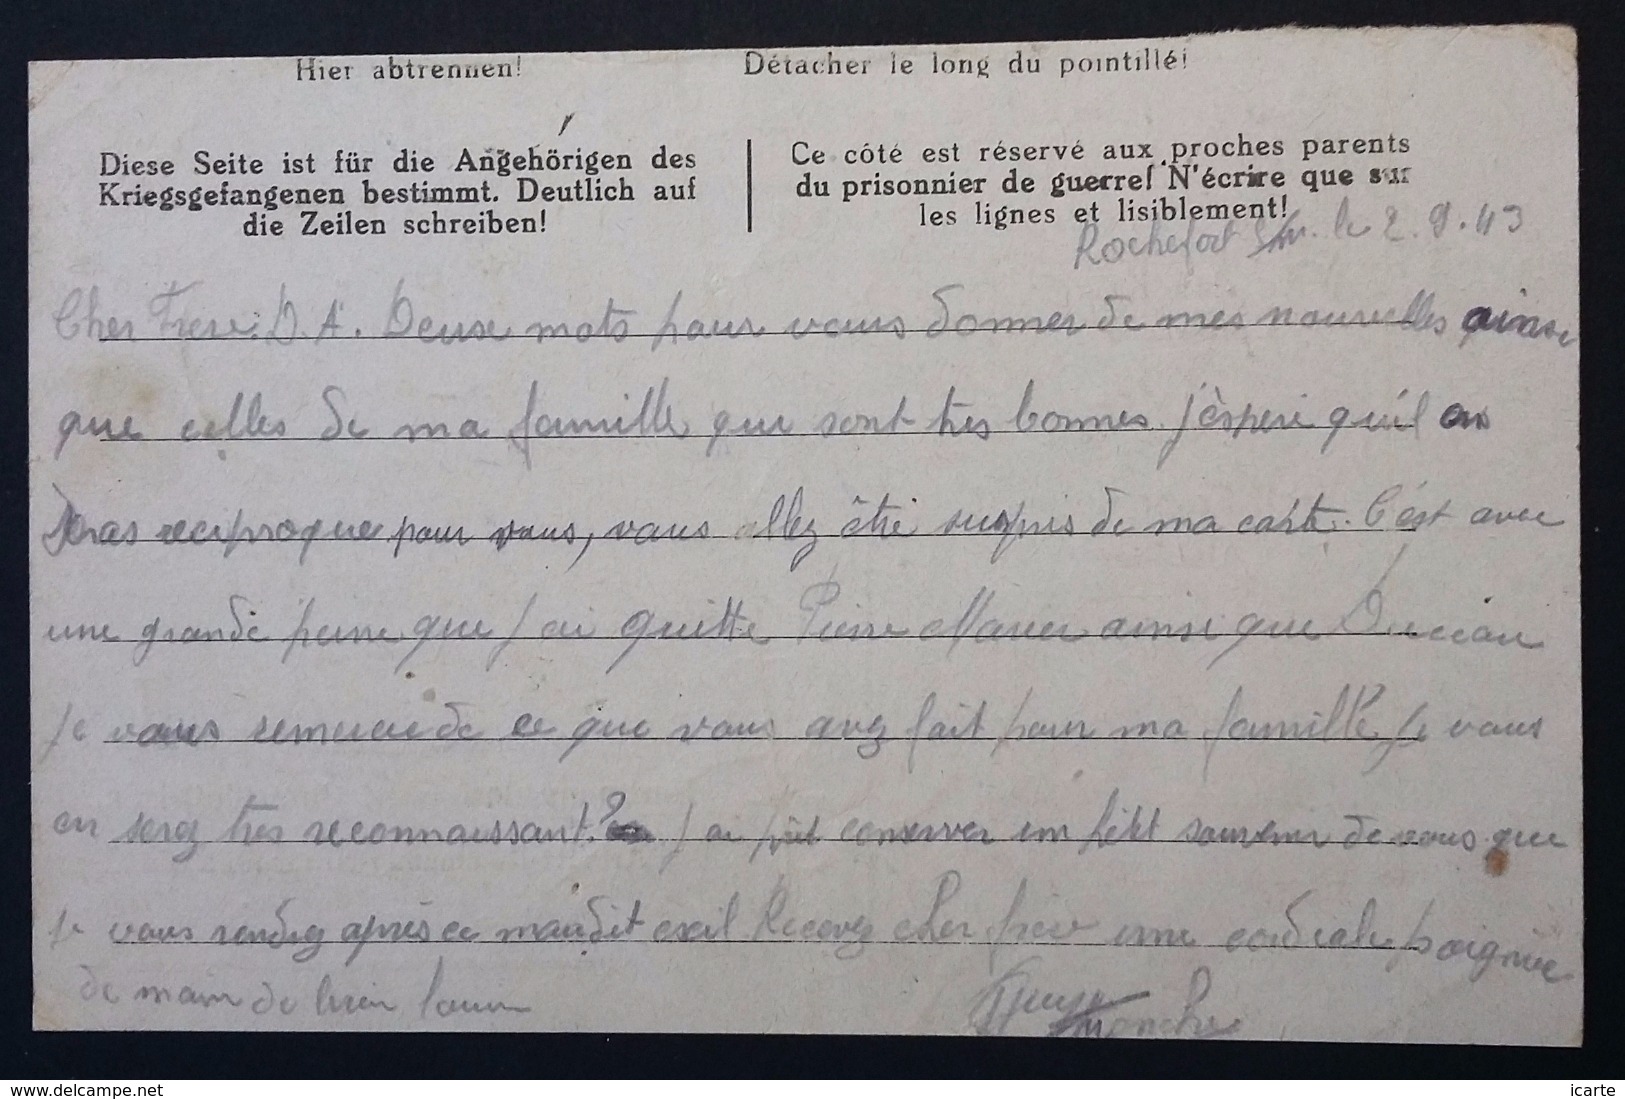 Hier abtrennen!
Détacher le long du pointillé!
Diese Seite ist für die Angehörigen des
Kriegsgefangenen bestimmt. Deutlich auf
die Zeilen schreiben!
Ce côté est réservé aux proches parents
du prisonnier de guerre! N'écrire que sur
les lignes et lisiblement!
Rochefort le 2.9.43
Cher Frere D. A. Deuse mots pour vous donner de mes nouvelles ainsi
que celles de ma famille que sont tres bonnes j'éspere qu'il en
seras reciproque pour vous, vous allez être surpris de ma carte. C'ést avec
une grande peine que j'ai quitte Pierre ainsi que
je vous remercie de ce que vous avez fait pour ma famille je vous
en serez tres reconnaissant. j'ai conserver un petet souvenir de vous que
je vous rendez après ce maudit exil Recevez cher frère une cordiale poignée
de main de bien
www.delcampe.net
icarte